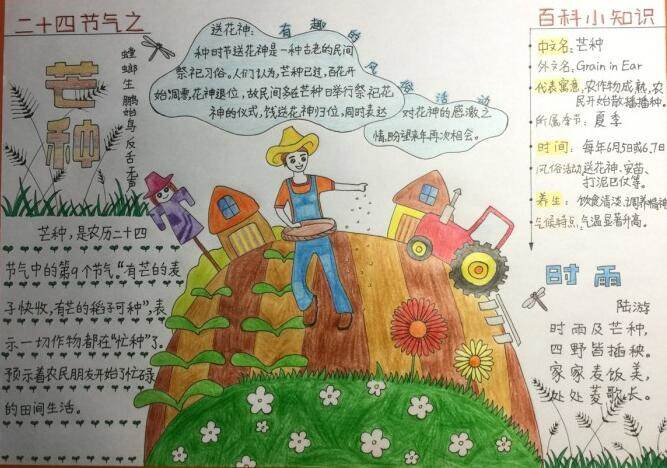 二十四节气之
芒种
螳螂生 鹏始鸟 反舌无声
芒种，是农历二十四
节气中的第9个节气。"有芒的麦
子快收，有芒的稻子可种"，表
示一切作物都在"忙种"了。
预示着农民朋友开始了忙碌
的田间生活。
有趣的风俗活动
送花神：
种时节送花神是一种古老的民间
祭祀习俗。人们认为，芒种已过，百花开
始凋零，花神退位，故民间多在芒种日举行祭祀花
神的仪式，饯送花神归位，同时表达
对花神的感激之
情，盼望来年再次相会。
百科小知识
中文名：芒种
外文名：Grain in Ear
代表寓意：农作物成熟，农
民开始散播播种。
所属季节：夏季
时间：每年6月5日或6、7日
风俗活动：送花神、安苗、
打泥巴仗等。
养生：饮食清淡、调养精神
气候特点：气温显著升高。
时雨
陆游
时雨及芒种，
四野皆插秧。
家家麦饭美，
处处菱歌长。